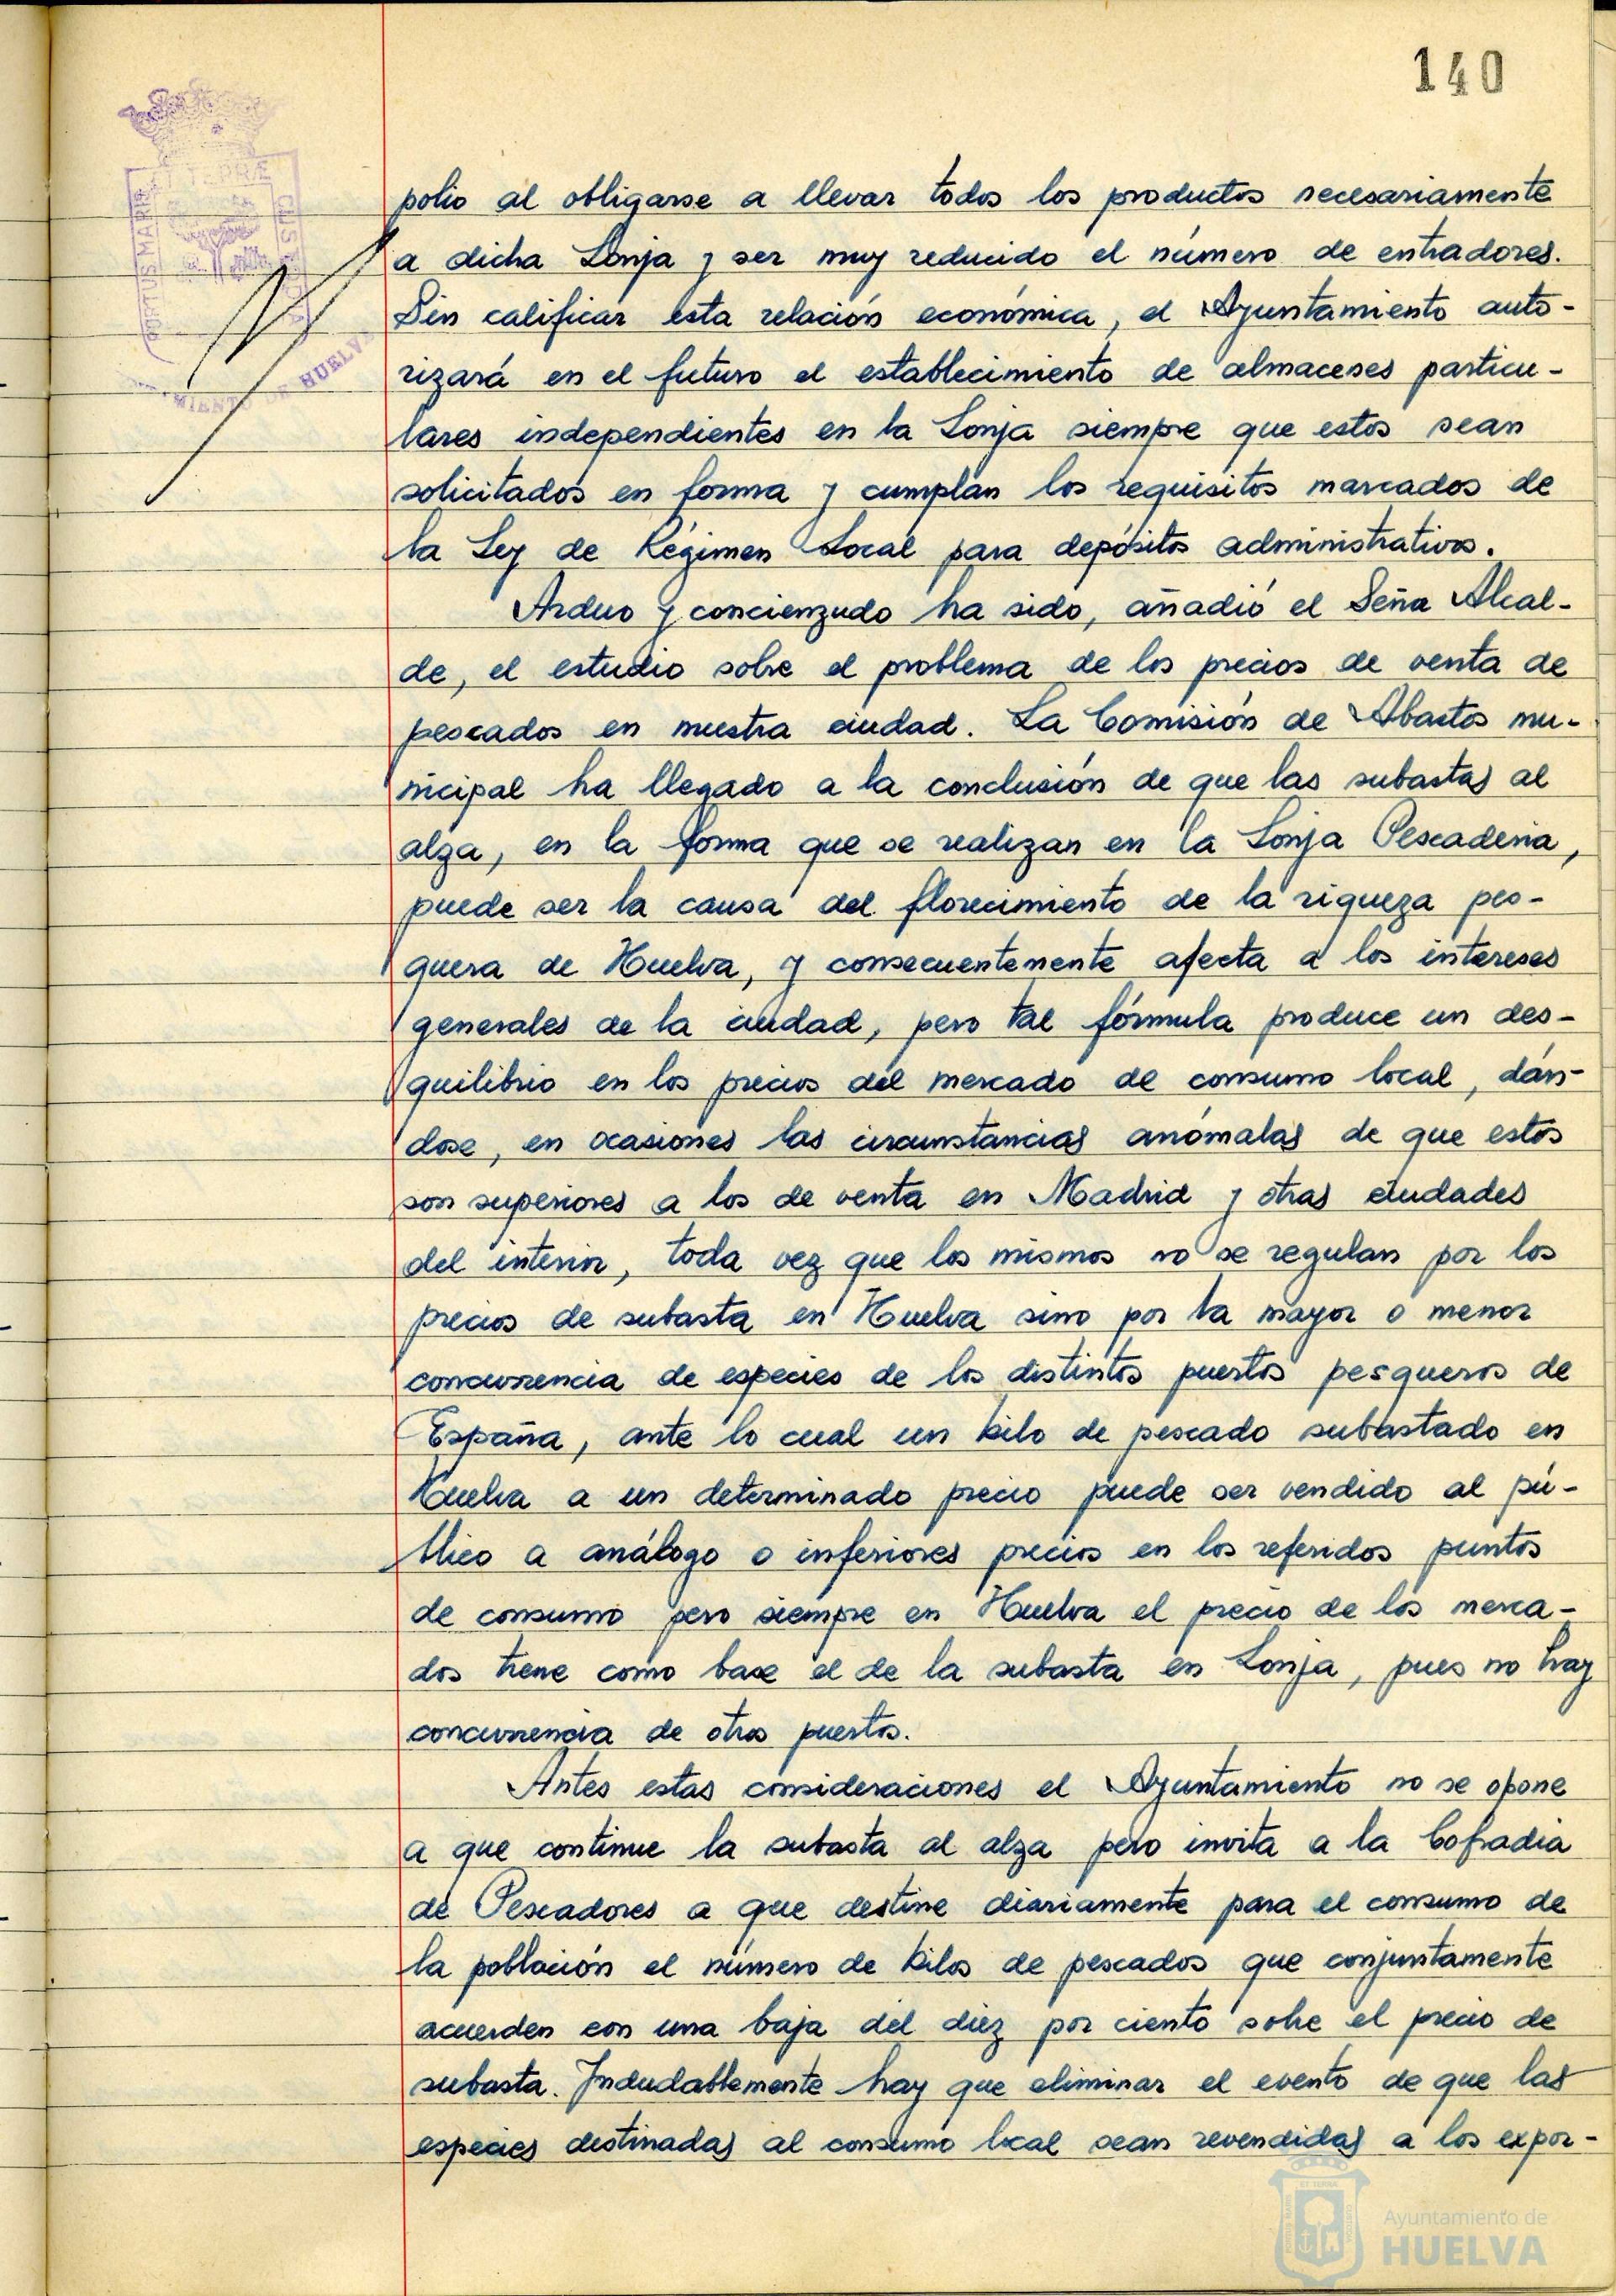 140
ET TERRÆ
PORTUS MARIS
CUSTODIA
MIENTO DE HUELVA
polio al obligarse a llevar todos los productos necesariamente
a dicha Lonja y ser muy reducido el número de entradores.
Sin calificar esta relación económica, el Ayuntamiento auto-
rizará en el futuro el establecimiento de almacenes particu-
lares independientes en la Lonja siempre que estos sean
solicitados en forma y cumplan los requisitos marcados de
la Ley de Régimen Local para depósitos administrativos.
Arduo y concienzudo ha sido, añadió el Señor Alcal-
de, el estudio sobre el problema de los precios de venta de
pescados en nuestra ciudad. La Comisión de Abastos mu-
nicipal ha llegado a la conclusión de que las subastas al
alza, en la forma que se realizan en la Lonja Pescadería,
puede ser la causa del florecimiento de la riqueza pes-
quera de Huelva, y consecuentemente afecta a los intereses
generales de la ciudad, pero tal fórmula produce un des-
quilibrio en los precios del mercado de consumo local, dán-
dose, en ocasiones las circunstancias anómalas de que estos
son superiores a los de venta en Madrid y otras ciudades
del interior, toda vez que los mismos no se regulan por los
precios de subasta en Huelva sino por la mayor o menor
concurrencia de especies de los distintos puertos pesqueros de
España, ante lo cual un kilo de pescado subastado en
Huelva a un determinado precio puede ser vendido al pú-
blico a análogo o inferiores precios en los referidos puntos
de consumo pero siempre en Huelva el precio de los merca-
dos tiene como base el de la subasta en Lonja, pues no hay
concurrencia de otros puertos.
Antes estas consideraciones el Ayuntamiento no se opone
a que continue la subasta al alza pero invita a la Cofradia
de Pescadores a que destine diariamente para el consumo de
la población el número de kilos de pescados que conjuntamente
acuerden con una baja del diez por ciento sobre el precio de
subasta. Indudablemente hay que eliminar el evento de que las
especies destinadas al consumo local sean revendidas a los expor-
Ayuntamiento de
HUELVA